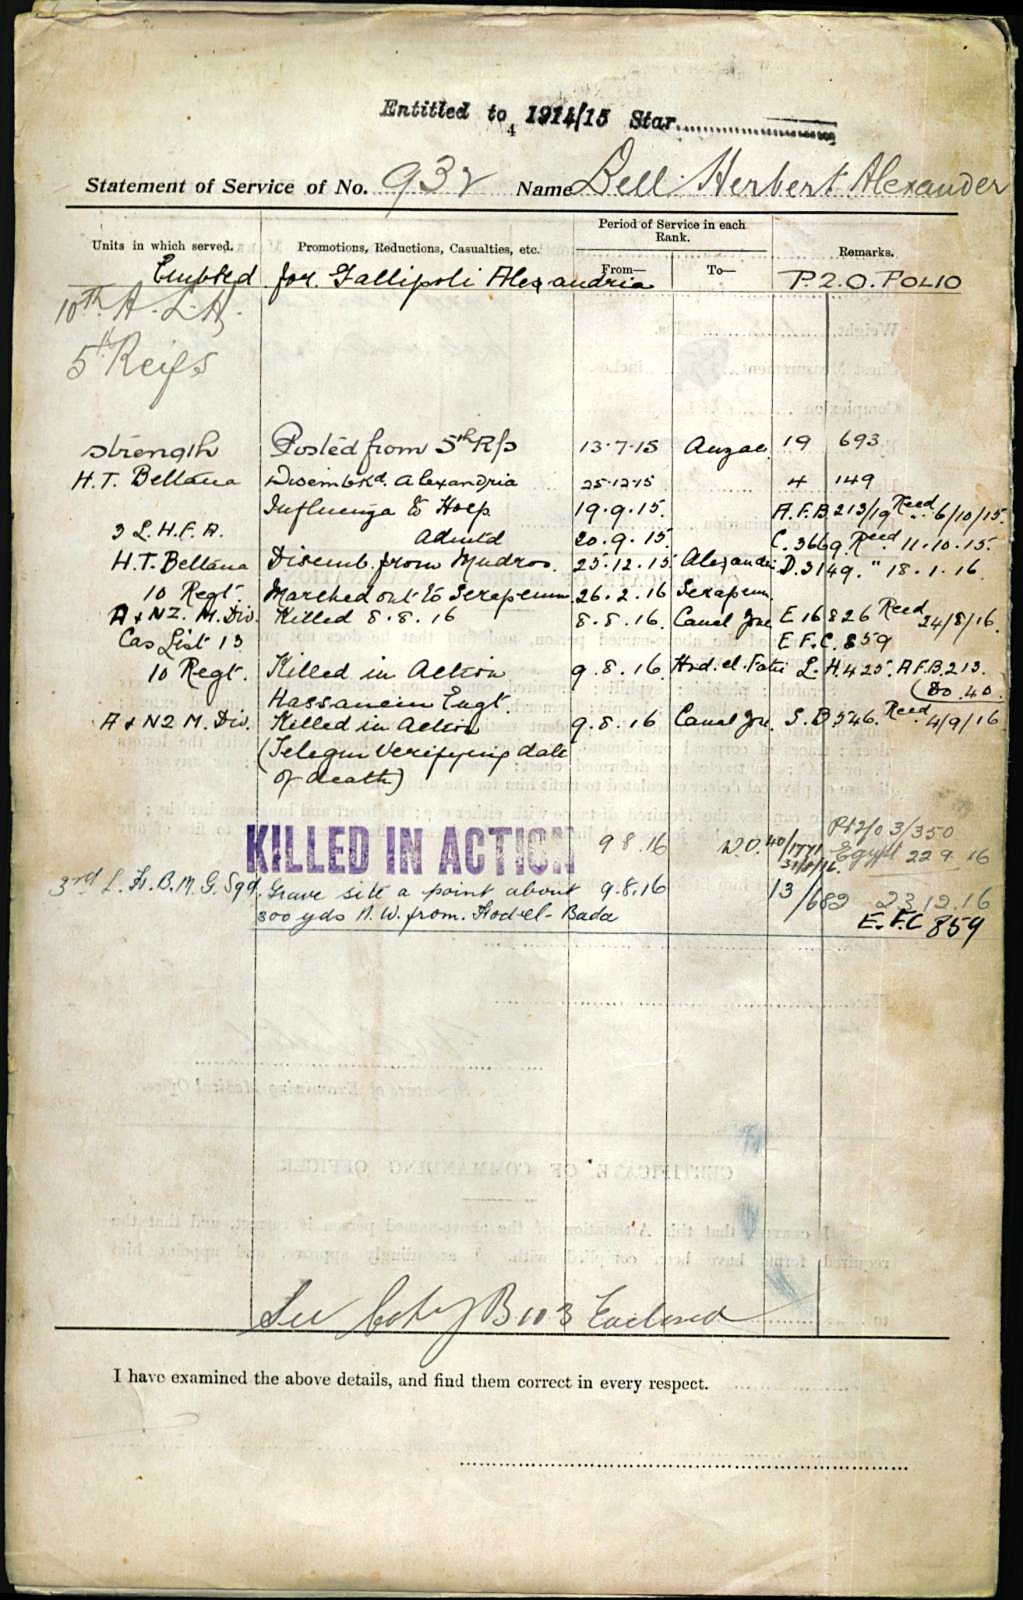 Entitled to 1914/15 Star
4
Statement of Service of No. 932 Name Bell Herbert Alexander
Units in which served. Promotions, Reductions, Casualties, etc. Period of Service in each Rank. From— To— Remarks.
Embkd for Gallipoli Alexandria P.2.O. FOLIO
10th A.L.H.
5th Reifs
strength Posted from 5th R/s 13-7-15 Anzac 19 693
H.T. Beltana Disembkd. Alexandria 25-12-15 4 149
Influenza to Hosp 19.9.15. A.F.B 213/19 Recd 6/10/15.
3 L.H.F.A. Admtd 20.9.15. C.3669 Recd 11.10.15.
H.T. Beltana Disemb. from Mudros. 25.12.15 Alexandria D.3149. " 18.1.16.
10 Regt. Marched out to Serapeum 26.2.16 Serapeum
A & NZ. M. Div. Killed 8.8.16 8.8.16. Canal Zne E 16826 Recd 24/8/16.
Cas List 13 E.F.C. 859
10 Regt. Killed in Action 9.8.16. Hod.el. L.H.425. A.F.B.213.
Hassanein Egpt. (Do 40.
A & NZ M. Div. Killed in Action 9.8.16 Canal Zne. S.B 546. Recd 4/9/16
(Telegm verifying date
of death)
KILLED IN ACTION 9 8.16 W.O. 40/1771 31/8/16. 3/350
Egypt 22 9 16
3rd L.H.B.M.G. Sqd. Grave site a point about 9.8.16 13/682 23.12.16
300 yds N.W. from. Hod-el-Bada E.F.C 859
See Copy B103 Enclosed
I have examined the above details, and find them correct in every respect.